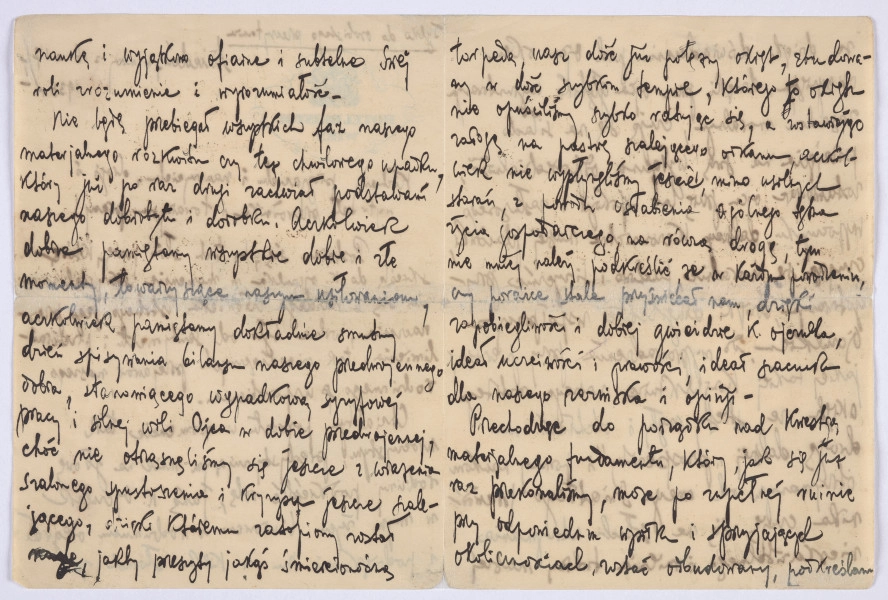 naukę i wyjątkowo ofiarne i subtelne Swej
roli zrozumienie i wyrozumiałość. –
Nie będę przebiegał wszystkich faz naszego
materjalnego rozkwitu czy też chwilowego upadku,
który już po raz drugi zachwiał podstawami
naszego dobrobytu i dorobku. Aczkolwiek
dobrze pamiętamy wszystkie dobre i złe
momenty, towarzyszące naszym usiłowaniom,
aczkolwiek pamiętamy dokładnie smutny
dzień spisywania bilansu naszego przedwojennego
dobra, stanowiącego wypadkową syzyfowej
pracy i silnej woli Ojca w dobie przedwojennej,
choć nie otrząsnęliśmy się jeszcze z wrażenia
szalonego spustoszenia i kryzysu jeszcze szale-
jącego, dzięki któremu zatopiony został
, jakby przeszyty jakąś śmiercionośną
torpedą, nasz dość już potężny okręt, zbudowa-
ny w dość szybkim tempie, którego to okrętu
nie opuściliśmy szybko ratując się, a zostawiając
załogę na pastwę szalejącego orkanu, aczkol-
wiek nie wypłynęliśmy jeszcze, mimo usilnych
starań, z powodu osłabienia ogólnego tętna
życia gospodarczego, na równą drogę, tym
nie mniej należy podkreślić że w każdem powodzeniu,
czy porażce stale przyświecał nam, dzięki
zapobiegliwości i dobrej gwieździe K. Ojczulka,
ideał uczciwości i prawości, ideał szacunku
dla naszego nazwiska i opinji –
Przechodząc do porządku nad kwestją
materjalnego fundamentu, który, jak się już
raz przekonaliśmy, może po zupełnej ruinie
przy odpowiednim wysiłku i sprzyjających
okolicznościach, zostać odbudowany, podkreślam